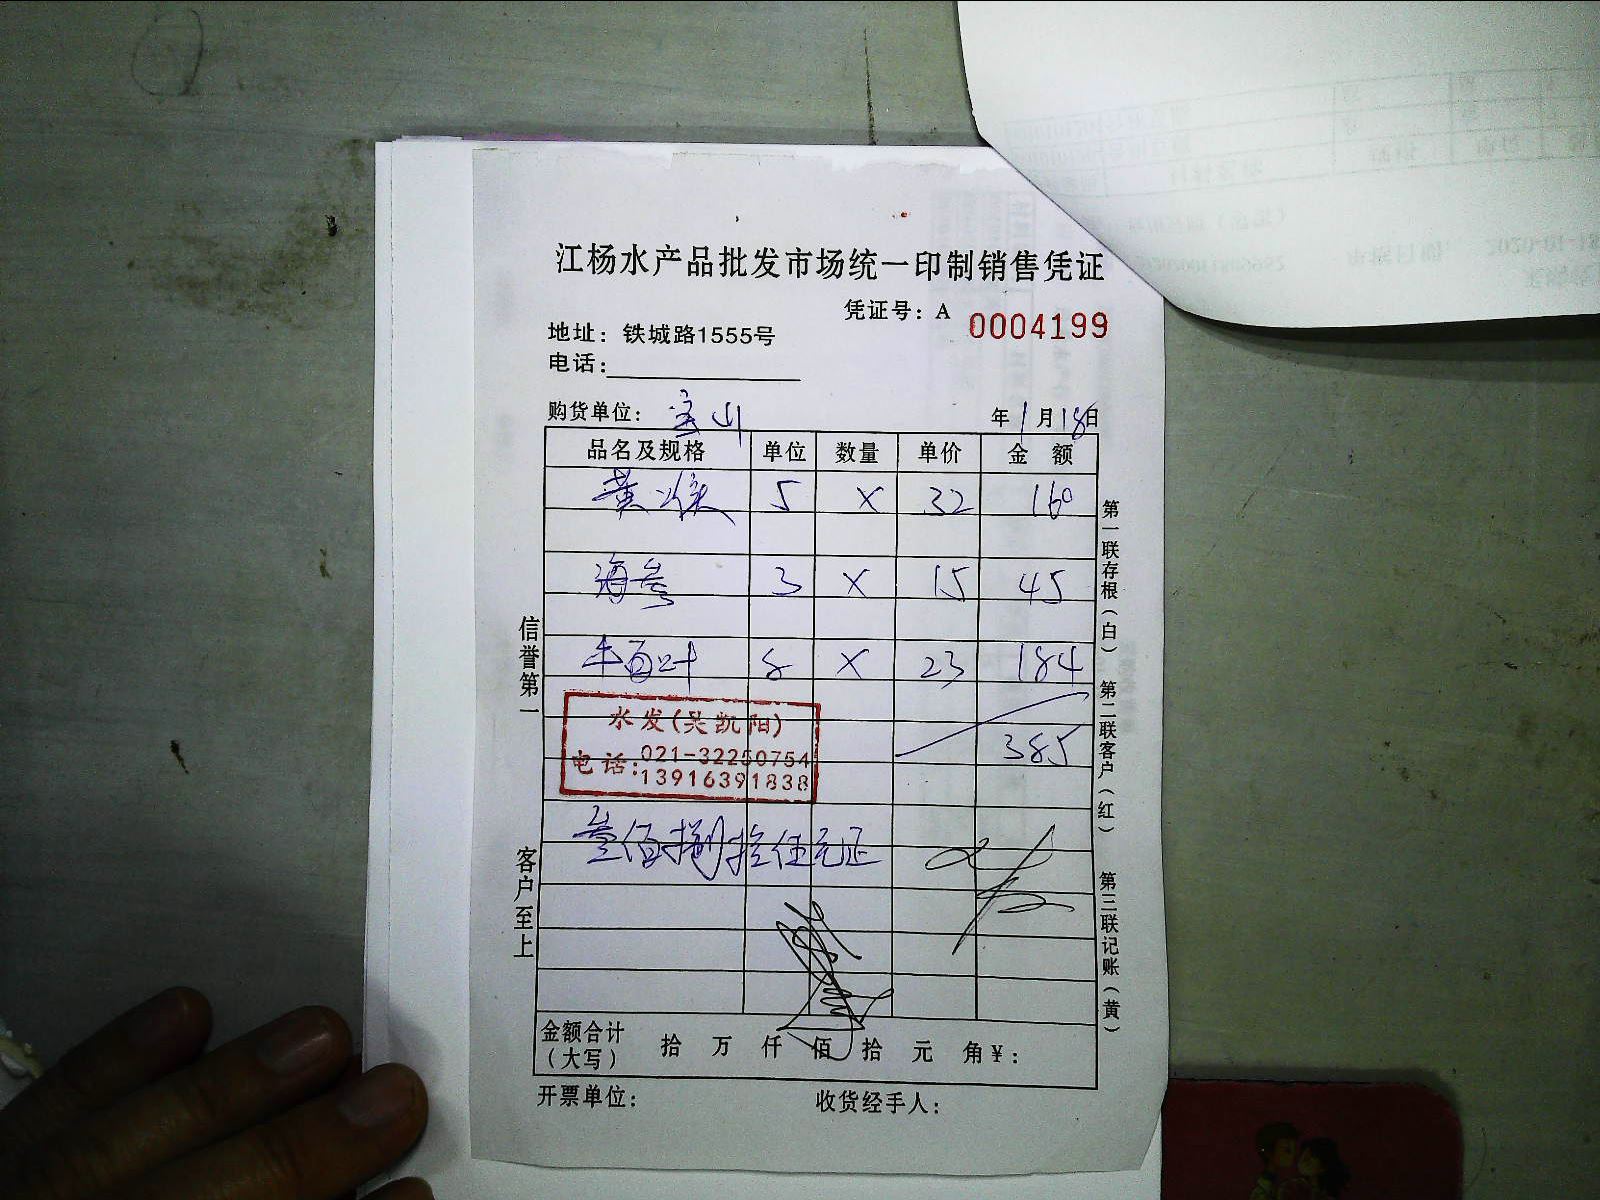 江杨水产品批发市场统一印制销售凭证
凭证号：A 0004199
地址：铁城路1555号
电话：
购货单位：宝山 年1月18日
品名及规格 单位 数量 单价 金额
黄喉 5 X 32 160
海参 3 X 15 45
牛百叶 8 X 23 184
385
水发(吴凯阳)
电话:021-32250754
13916391838
叁佰捌拾伍元正
金额合计
（大写） 拾 万 仟 佰 拾 元 角￥：
开票单位： 收货经手人：
信誉第一
客户至上
第一联存根（白）
第二联客户（红）
第三联记账（黄）